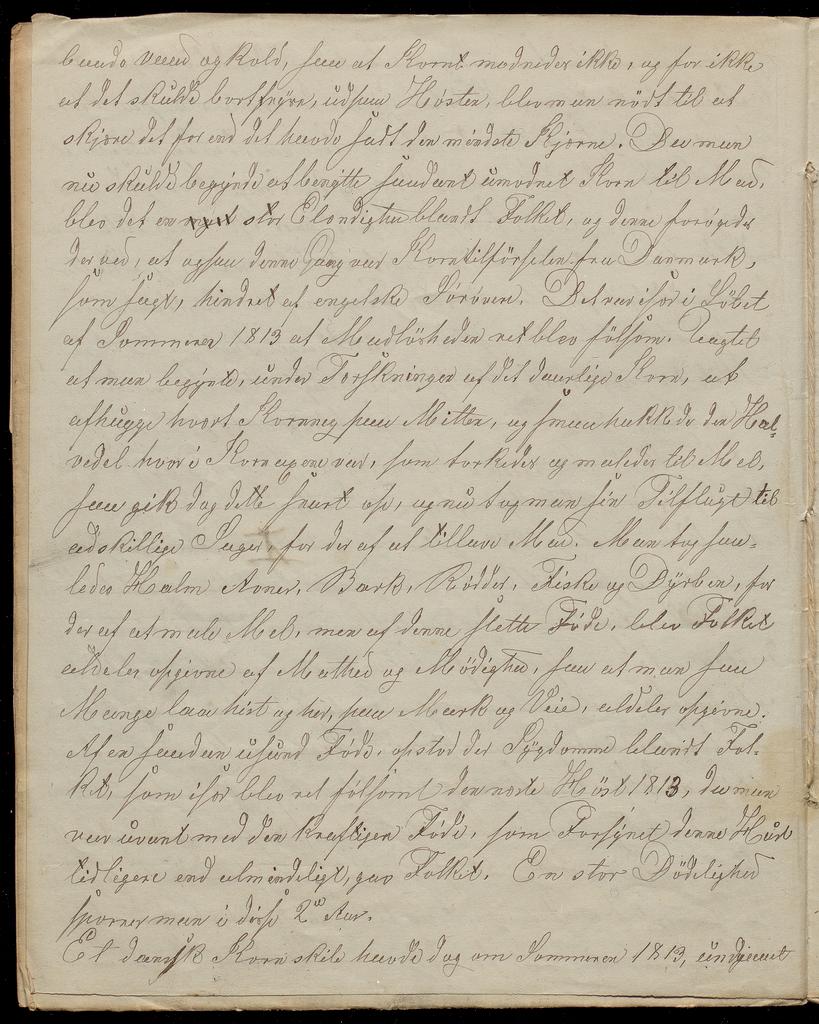 baade vaad og kold, saa at Kornet modnedes ikke, og for ikke
at det skulde bortfryse, ud paa Høsten, blev man nødt til at
skjære det før end det havde sadt den mindste Kjærne. Da man
nu skulde begynde at benytte saadant umodnet Korn til Mad,
blev det en stor Elendighed blandt Folket, og denne forøgedes
derved, at ogsaa denne Gang var Korntilførselen fra Danmark,
som sagt, hindret af engelske Sørøvere. Det var især i Løbet
af Sommeren 1813 at Madløsheden ret blev følsom. Uagtet
at man begynte, under Tørskningen af det daarlige Korn, at
afhugge hvert Kornneg paa Mitten, og smaahakkede den Hal-
vedel hvor i Kornaxene var, som tørkedes og maledes til Mel,
saa gik dog dette snart op, og nu tog man sin Tilflugt til
adskillige Sager, for der af at tillave Mad. Man tog saa-
ledes Halm Avner, Bark, Rødder, Fiske og Dyrben, for
der af at male Mel, men af denne slette Føde, blev Folket
aldeles opgivne af Mathed og Mødighed, saa at man saa
Mange laa hist og her, paa Mark og Veie, aldeles opgivne.
Af en saadan usund Føde, opstod der Sygdomme blandt Fol-
ket, som især blev ret følsomt den næste Høst 1813, da man
var uvant med den kraftigere Føde, som Forsynet denne Høst
tidligere end almindeligt, gav Folket. En stor Dødelighed
sporer man i disse 2de Aar.
Et dansk Kornskib havde dog om Sommeren 1813, undgaaet